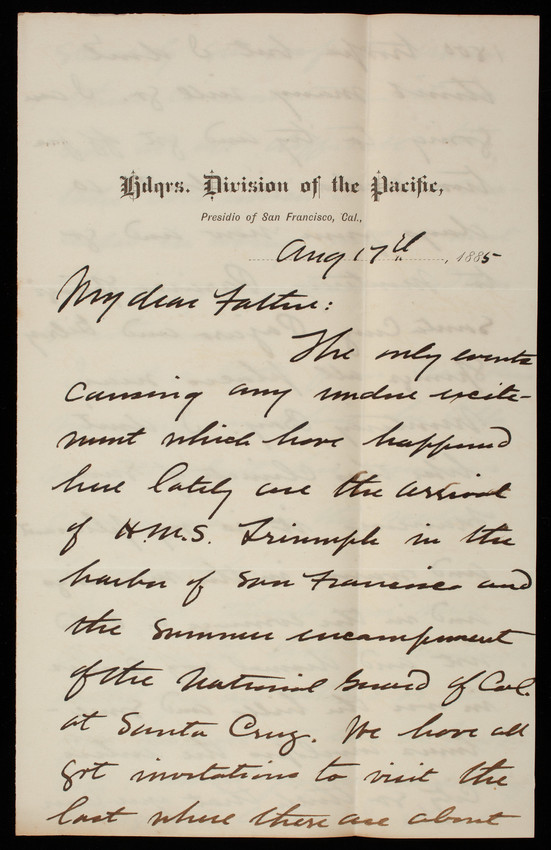 Hdqrs. Division of the Pacific,
Presidio of San Francisco, Cal.,
Aug 17th, 1885
My dear Father:
The only events
causing any undue excite-
ment which have happened
here lately are the arrival
of H.M.S. Triumph in the
harbor of San Francisco and
the summer encampment
of the National Guard of Cal.
at Santa Cruz. We have all
got invitations to visit the
last where there are about